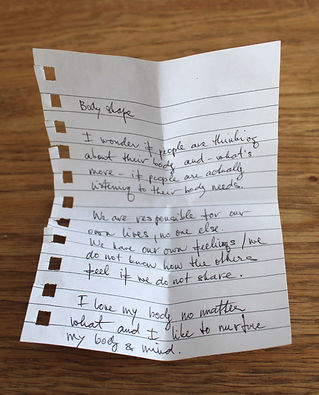 Body shape
I wonder if people are thinking
about their body and - what's
more - if people are actually
listening to their body needs.
We are responsible for our
own lives, no one else.
We have our own feelings / we
do not know how the others
feel if we do not share.
I love my body no matter
what and I like to nurture
my body & mind.